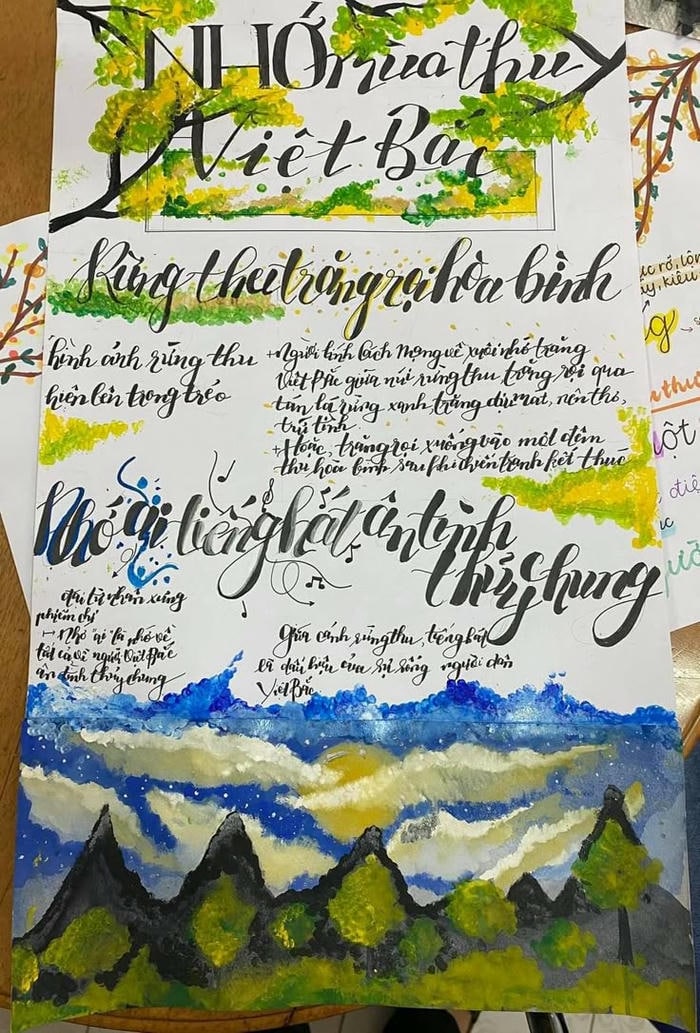 NHỚ mùa thu
Việt Bắc
Rừng thu trăng rọi hòa bình
hình ảnh rừng thu
hiện lên trong trẻo
+Người lính Cách Mạng về xuôi nhớ trăng
Việt Bắc giữa núi rừng thu, trăng rọi qua
tán lá rừng xanh, trăng dịu mát, nên thơ,
trữ tình.
+Hoặc, trăng rọi xuống vào một đêm
thu hòa bình sau khi chiến tranh kết thúc
Nhớ ai tiếng hát ân tình
thủy chung
đại từ nhân xưng
phiếm chỉ
→ Nhớ "ai" là nhớ về
tất cả về người Việt Bắc
ân tình thủy chung
Giữa cánh rừng thu, tiếng hát
là dấu hiệu của sự sống người dân
Việt Bắc
ực rỡ, lộn
ấy, kiêu
g
thư
ột
điệ